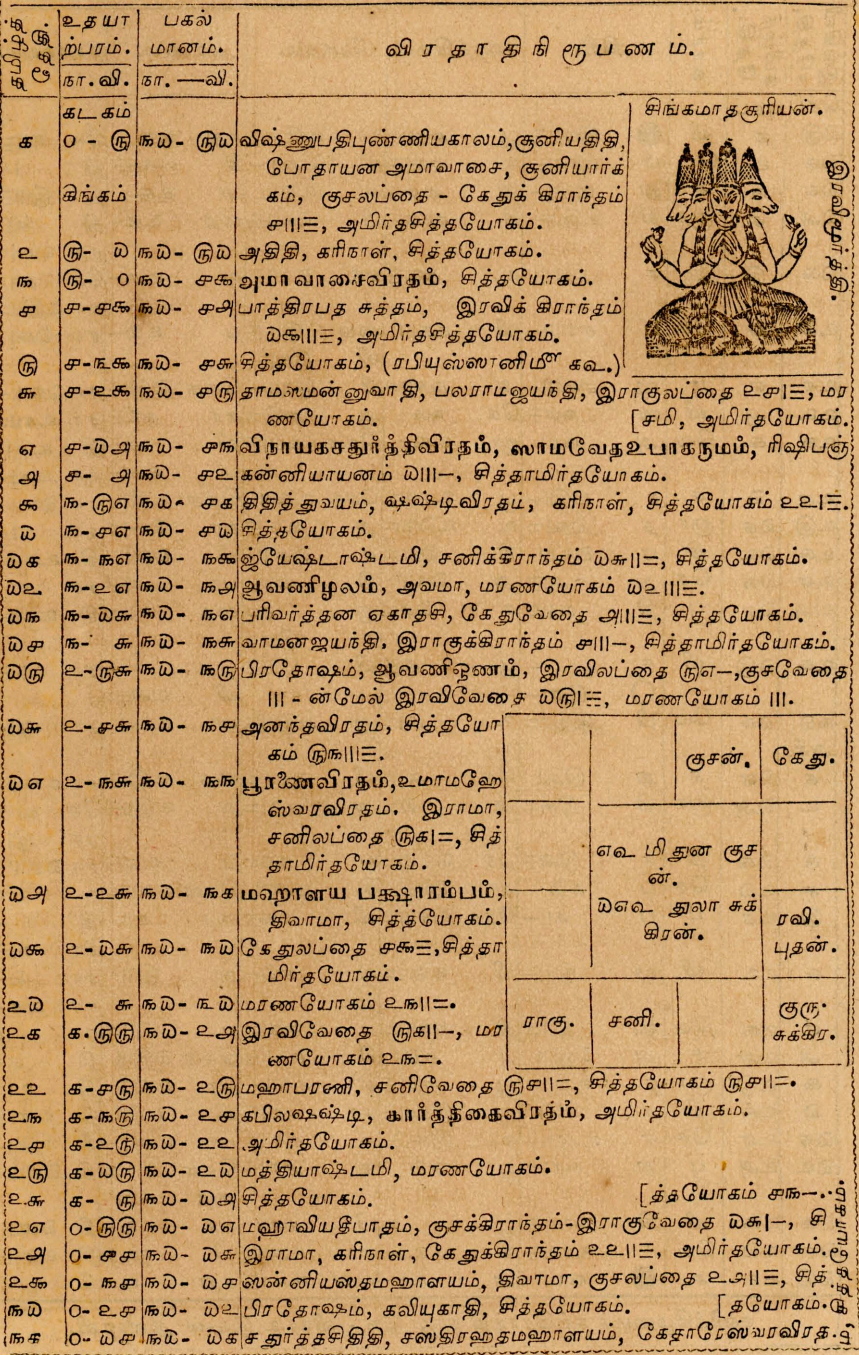 தமிழ்த் தேதி. உதயா பகல் விரதாதிநிரூபணம்.
ற்பரம். மானம்.
நா. வி. நா. —வி.
கடகம் சிங்கமாதசூரியன்.
க 0 - ௫ ௩௰ - ௫௰ விஷ்ணுபதிபுண்ணியகாலம், சூனியதிதி,
போதாயன அமாவாசை, சூனியார்க்
சிங்கம் கம், குசலப்தை - கேதுக் கிராந்தம்
௪|||☰, அமிர்தசித்தயோகம்.
௨ ௫- ௰ ௩௰- ௫௰ அதிதி, கரிநாள், சித்தயோகம்.
௩ ௫- 0 ௩௰- ௪௯ அமாவாசைவிரதம், சித்தயோகம்.
௪ ௪-௪௯ ௩௰- ௪௮ பாத்திரபத சுத்தம், இரவிக் கிராந்தம்
௰௯|||☰, அமிர்தசித்தயோகம்.
௫ ௪-௩௯ ௩௰- ௪௬ சித்தயோகம், (ரபியுஸ்ஸானிமீ கூ.)
௬ ௪-௨௯ ௩௰- ௪௫ தாமஸமன்னுவாதி, பலராமஜயந்தி, இராகுலப்தை ௨௪|☰, மர
ணயோகம். [சமி, அமிர்தயோகம்.
௭ ௪-௰௮ ௩௰- ௪௩ விநாயகசதுர்த்திவிரதம், ஸாமவேதஉபாகருமம், ரிஷிபஞ்
௮ ௪- ௮ ௩௰- ௪௨ கன்னியாயனம் ௰|||–, சித்தாமிர்தயோகம்.
௯ ௩-௫௭ ௩௰- ௪௧ திதித்துவயம், ஷஷ்டிவிரதம், கரிநாள், சித்தயோகம் ௨௨|☰.
௰ ௩-௪௭ ௩௰- ௪௰ சித்தயோகம்.
௰௧ ௩- ௩௭ ௩௰- ௩௯ ஜ்யேஷ்டாஷ்டமி, சனிக்கிராந்தம் ௰௬||=, சித்தயோகம்.
௰௨ ௩-௨௭ ௩௰- ௩௮ ஆவணிமூலம், அவமா, மரணயோகம் ௰௨|||☰.
௰௩ ௩- ௰௬ ௩௰- ௩௭ பரிவர்த்தன ஏகாதசி, கேதுவேதை ௮|||☰, சித்தயோகம்.
௰௪ ௩- ௬ ௩௰- ௩௬ வாமனஜயந்தி, இராகுக்கிராந்தம் ௪|||–, சித்தாமிர்தயோகம்.
௰௫ ௨-௫௬ ௩௰- ௩௫ பிரதோஷம், ஆவணிஓணம், இரவிலப்தை ௫௭–,குசவேதை
||| - ன்மேல் இரவிவேசை ௰௫|☰, மரணயோகம் |||.
௰௬ ௨-௪௬ ௩௰- ௩௪ அனந்தவிரதம், சித்தயோ
கம் ௫௩|||☰. குசன். கேது.
௰௭ ௨-௩௬ ௩௰- ௩௩ பூரணைவிரதம்,உமாமஹே
ஸ்வரவிரதம். இராமா,
சனிலப்தை ௫௧|=, சித்
தாமிர்தயோகம். ௭உ மிதுன குச
ன்.
௰௮ ௨-௨௬ ௩௰- ௩௧ மஹாளய பக்ஷாரம்பம்,
திவாமா, சித்த்யோகம். ௰௭உ துலா சுக்
கிரன். ரவி.
௰௯ ௨-௰௬ ௩௰- ௩௰ கேதுலப்தை ௪௯☰,சித்தா புதன்.
மிர்தயோகம்.
௨௰ ௨- ௬ ௩௰- ௩௰ மரணயோகம் ௨௩||=.
௨௧ ௧.௫௫ ௩௰- ௨௮ இரவிவேதை ௫௧||–, மர ராகு. சனி. குரு. சுக்கிர.
ணயோகம் ௨௩=.
௨௨ ௧-௪௫ ௩௰- ௨௫ மஹாபரணி, சனிவேதை ௫௪||=, சித்தயோகம் ௫௪||=.
௨௩ ௧-௩௫ ௩௰- ௨௪ கபிலஷஷ்டி, கார்த்திகைவிரதம், அமிர்தயோகம்.
௨௪ ௧-௨௫ ௩௰- ௨௨ அமிர்தயோகம்.
௨௫ ௧-௰௫ ௩௰- ௨௰ மத்தியாஷ்டமி, மரணயோகம்.
௨௬ ௧- ௫ ௩௰- ௰௮ சித்தயோகம். [த்தயோகம் ௪௩–.
௨௭ 0-௫௫ ௩௰- ௰௭ மஹாவியதீபாதம், குசக்கிராந்தம்-இராகுவேதை ௰௬|–, சி
௨௮ 0- ௪௪ ௩௰- ௰௬ இராமா, கரிநாள், கேதுக்கிராந்தம் ௨௨||☰, அமிர்தயோகம்.
௨௯ 0- ௩௪ ௩௰- ௰௪ ஸன்னியஸ்தமஹாளயம், திவாமா, குசலப்தை ௨௮||☰, சித்
௩௰ 0- ௨௪ ௩௰- ௰௨ பிரதோஷம், கலியுகாதி, சித்தயோகம். [தயோகம்.
௩௧ 0- ௰௪ ௩௰- ௰௧ சதுர்த்தசிதிதி, சஸ்திரஹதமஹாளயம், கேதாரேஸ்வரவிரத